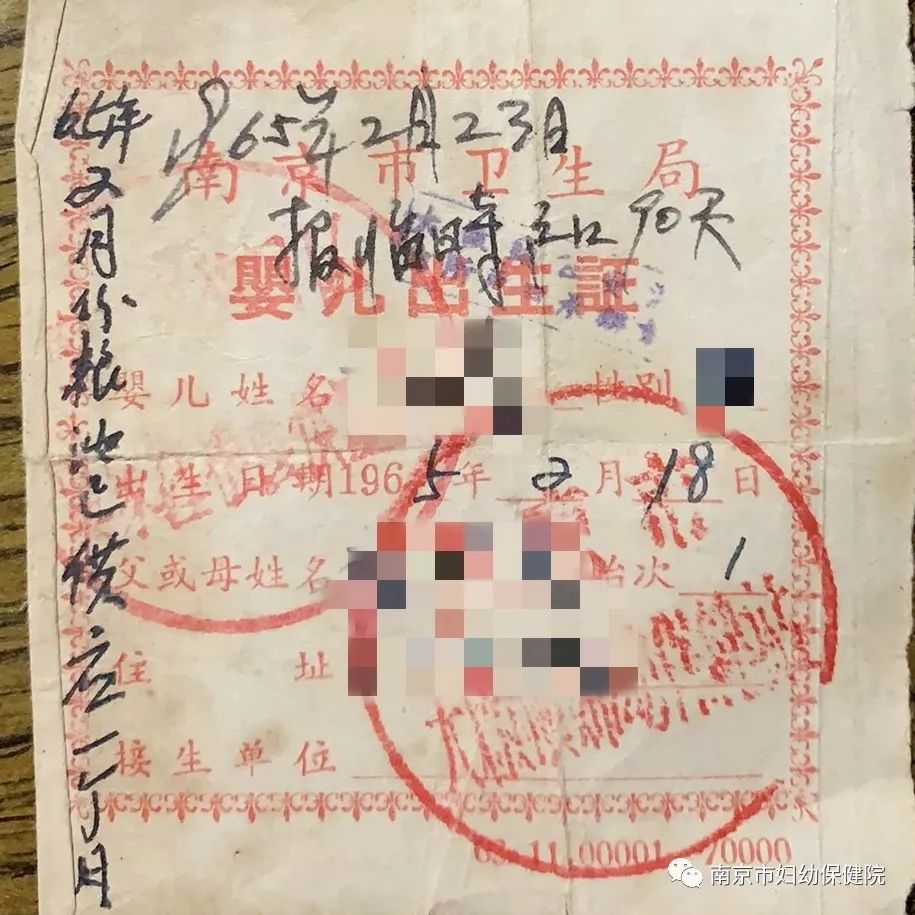 65年2月23日
南京市卫生局
报临時户口90天
嬰儿出生証
嬰儿姓名 性别
出生日期1965年2月18日
父或母姓名 胎次 1
住址
接生单位
65年2月份粮油已供应一个月
63.11.00001—70000
南京市妇幼保健院